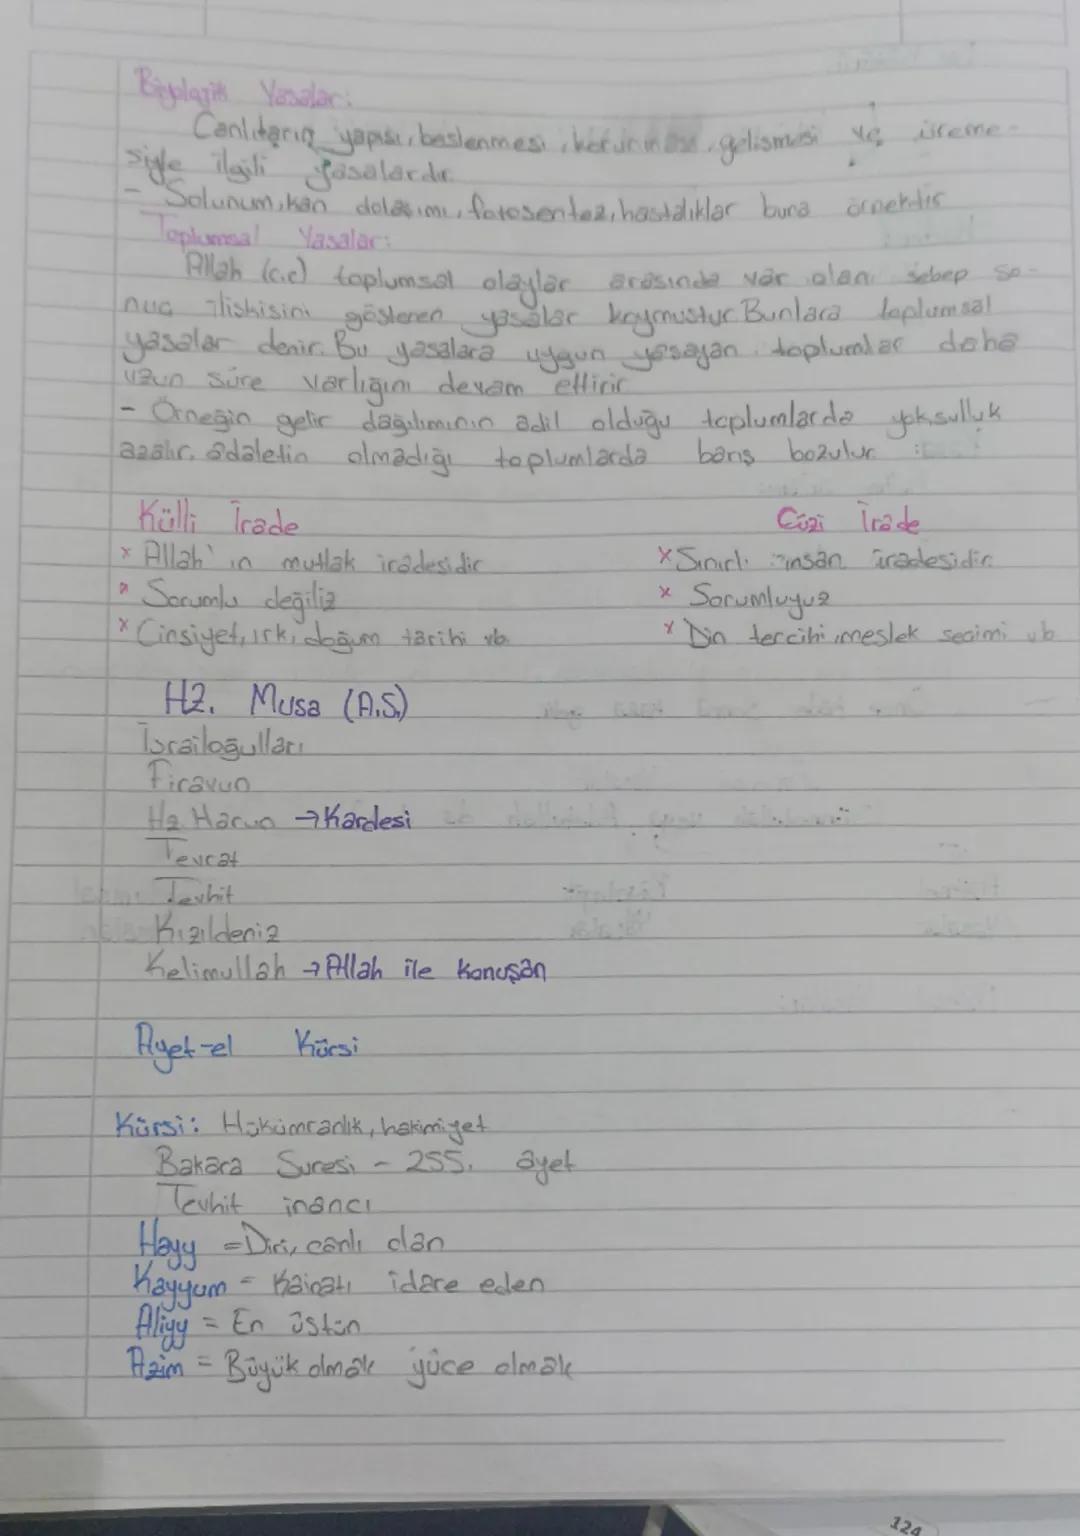 Biyolojik Yasalar:
Canlıların yapısı, beslenmesi, korunması, gelişmesi ve üreme-
siyle ilgili yasalardır.
- Solunum, kan dolaşımı, fotosentez, hastalıklar buna örnektir
Toplumsal Yasalar:
Allah (c.c) toplumsal olaylar arasında var olan sebep so-
nuç ilişkisini gösteren yasalar koymuştur. Bunlara toplumsal
yasalar denir. Bu yasalara uygun yaşayan toplumlar daha
uzun süre varlığını devam ettirir
- Örneğin gelir dağılımının adil olduğu toplumlarda yoksulluk
azalır, adaletin olmadığı toplumlarda barış bozulur
Külli İrade Cüzi İrade
x Allah'ın mutlak iradesidir x Sınırlı insan iradesidir.
x Sorumlu değiliz x Sorumluyuz
x Cinsiyet, ırk, doğum tarihi vb. x Din tercihi, meslek seçimi vb
HZ. Musa (A.S.)
İsrailoğulları
Firavun
Hz Harun → Kardeşi
Tevrat
Tevhit
Kızıldeniz
Kelimullah → Allah ile konuşan
Ayet-el Kürsi
Kürsi: Hükümranlık, hakimiyet
Bakara Suresi - 255. ayet
Tevhit inancı
Hayy = Diri, canlı olan
Kayyum = Kainatı idare eden
Aliyy = En üstün
Azim = Büyük olmak yüce olmak
124